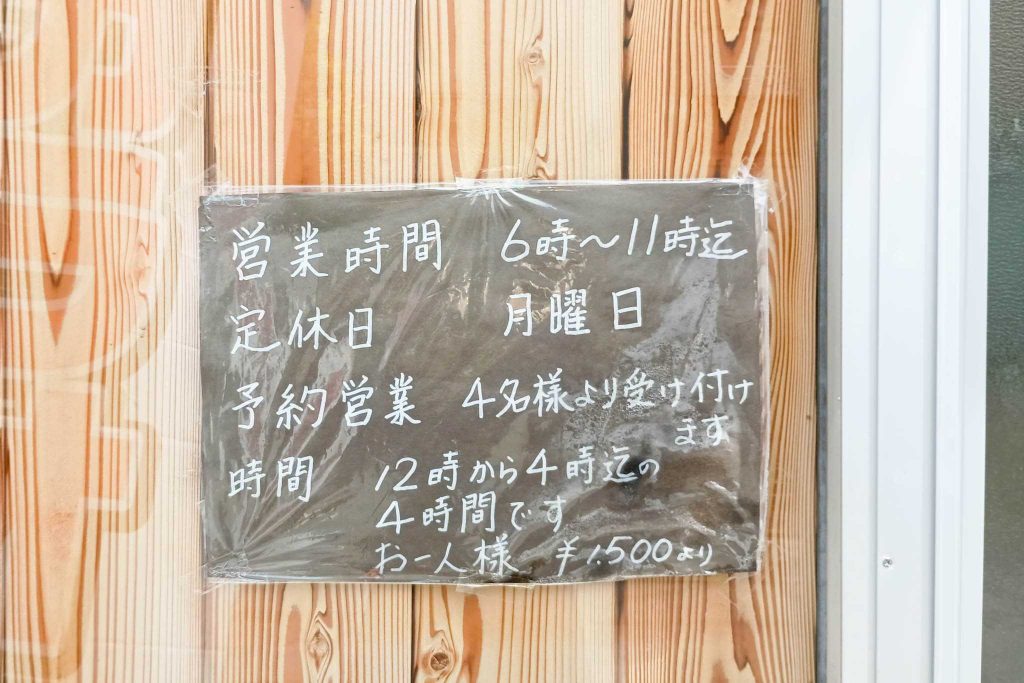 営業時間 6時〜11時迄
定休日 月曜日
予約営業 4名様より受け付け
ます
時間 12時から4時迄の
4時間です
お一人様 ¥1,500より